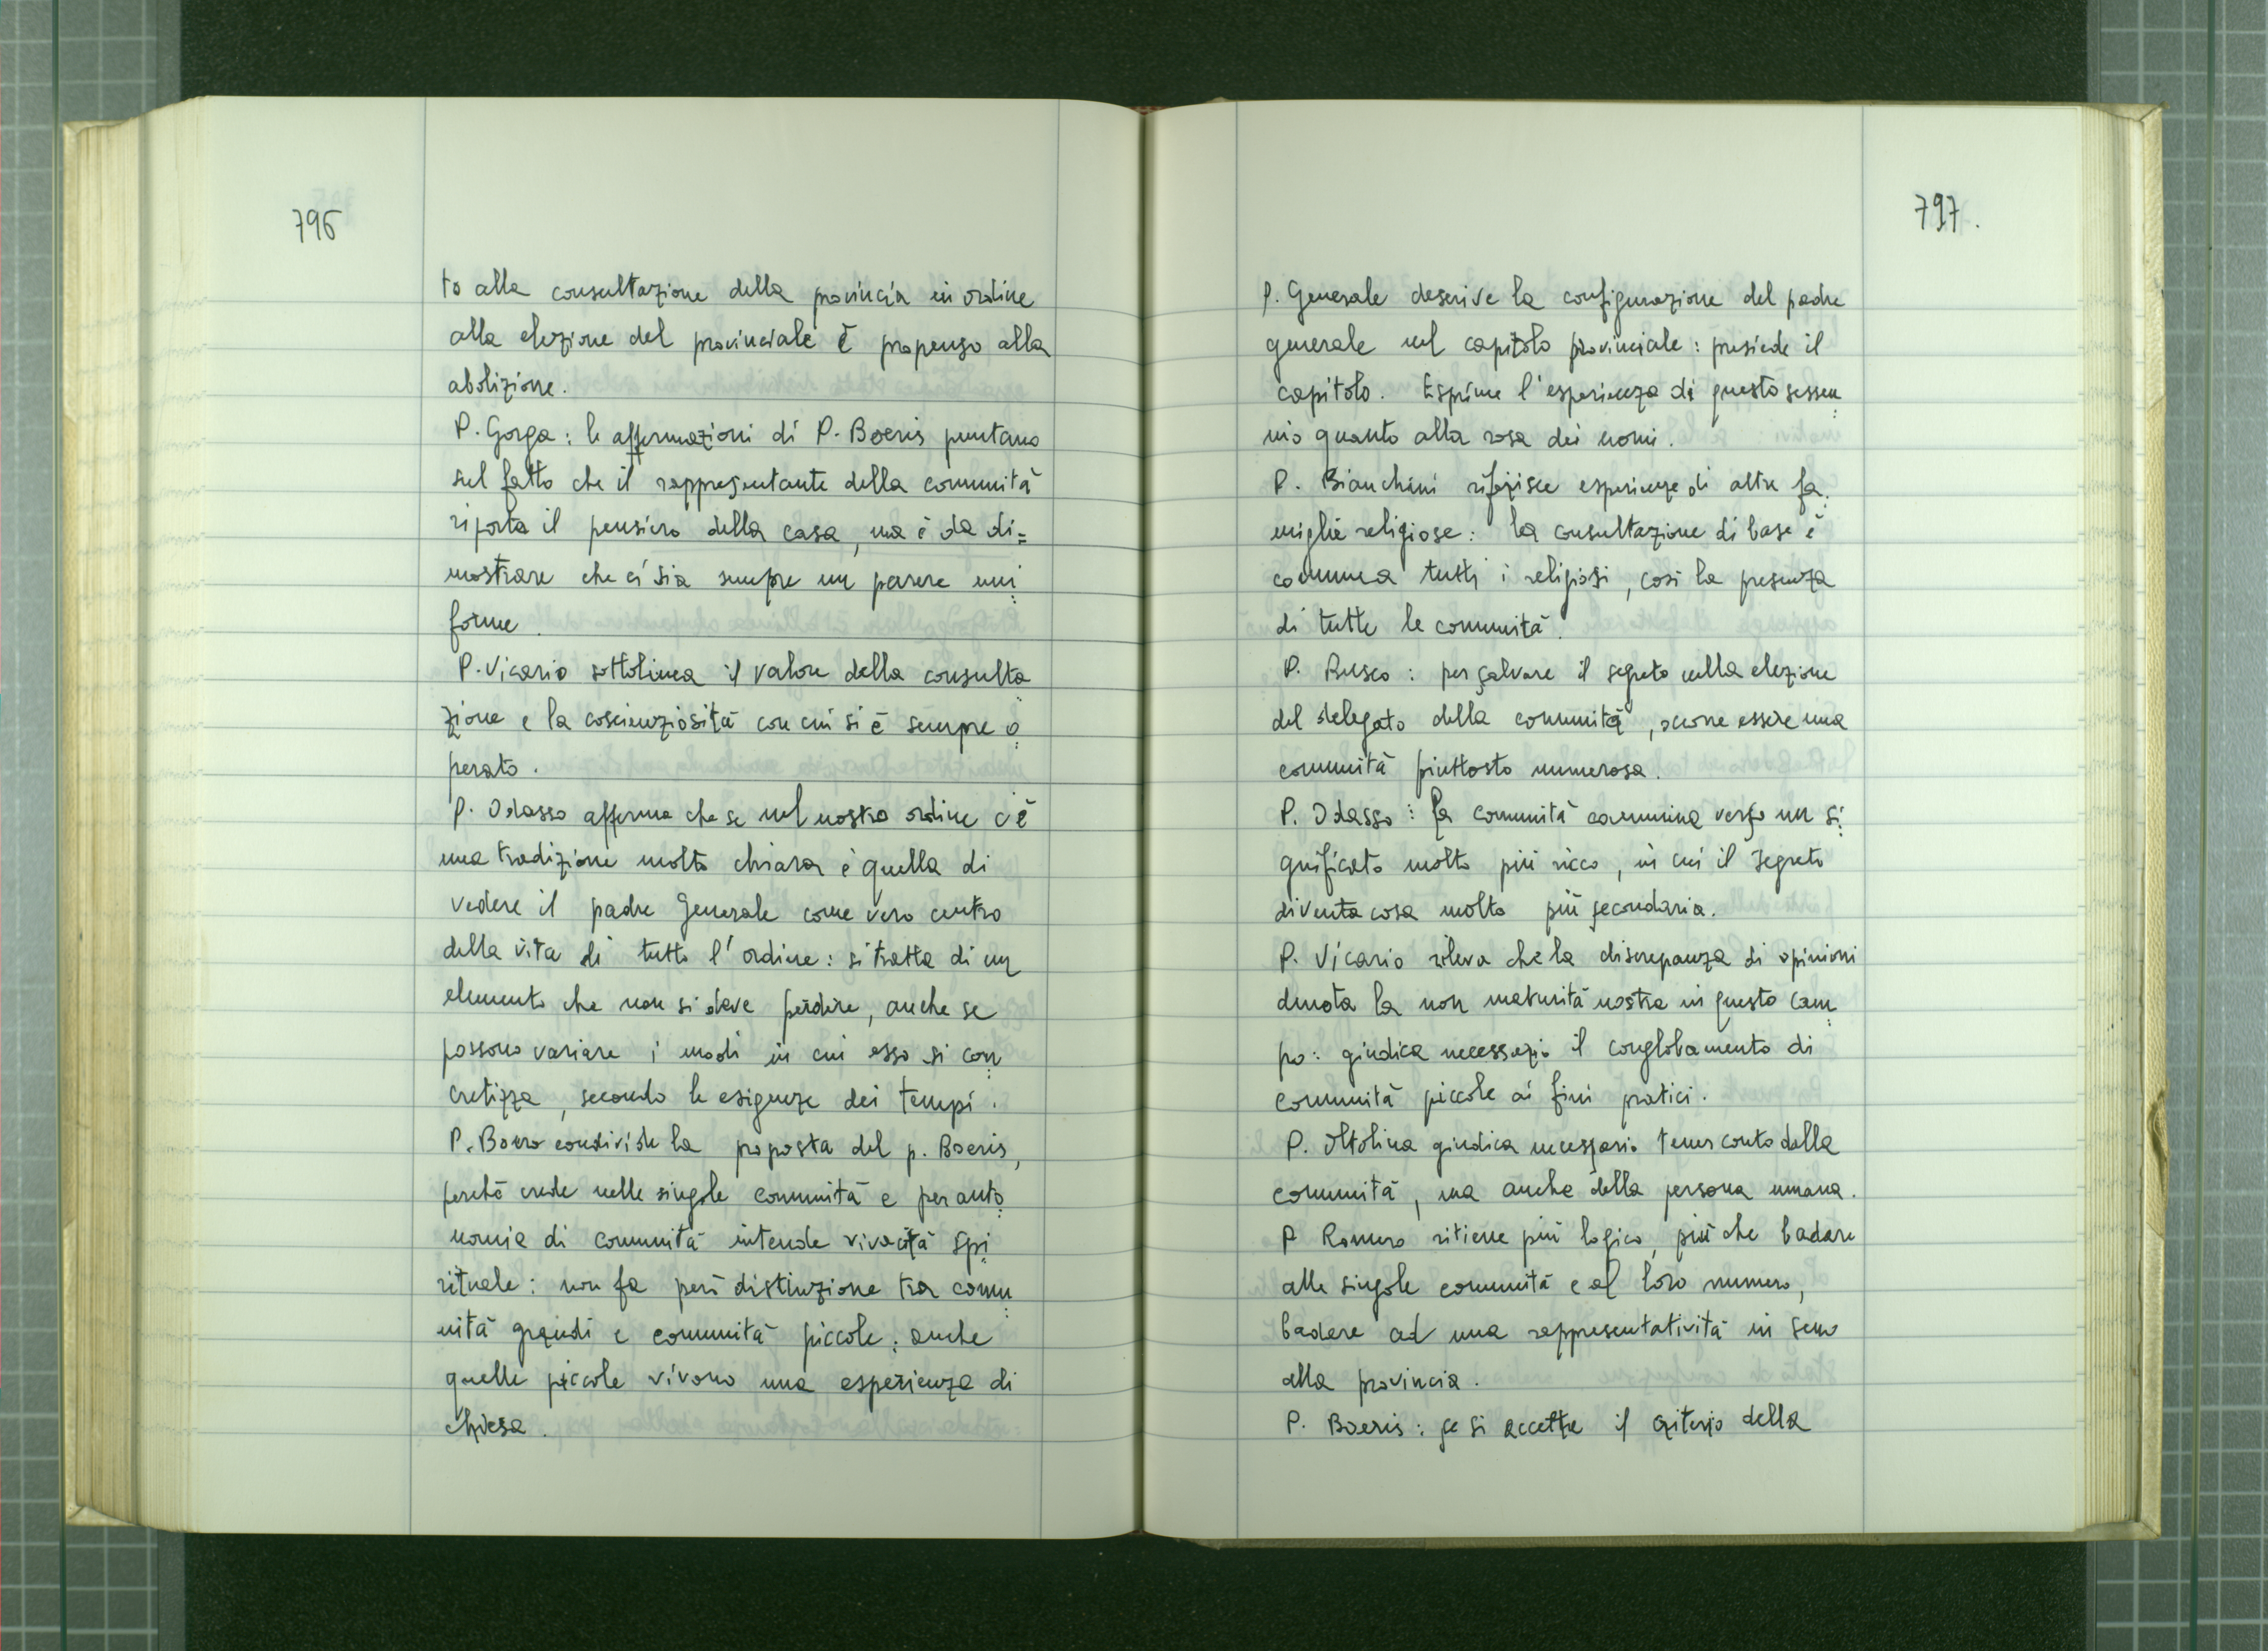 796
to alla consultazione della provincia in ordine
alla elezione del provinciale è propenso alla
abolizione.
P. Gorga: le affermazioni di P. Boeris puntano
sul fatto che il rappresentante della comunità
riporta il pensiero della casa, ma è da di=
mostrare che ci sia sempre un parere uni
forme.
P. Vicario sottolinea il valore della consulta
zione e la coscienziosità con cui si è sempre o
perato.
P. Odasso afferma che se nel nostro ordine c'è
una tradizione molto chiara è quella di
vedere il padre Generale come vero centro
della vita di tutto l'ordine: si tratta di un
elemento che non si deve perdere, anche se
possono variare i modi in cui esso si con
cretizza, secondo le esigenze dei tempi.
P. Boero condivide la proposta del p. Boeris,
perchè crede nelle singole comunità e per auto
nomia di comunità intende vivacità spi
rituale: non fa però distinzione tra comu
nità grandi e comunità piccole: anche
quelle piccole vivono una esperienza di
chiesa.
797.
P. Generale descrive la configurazione del padre
generale nel capitolo provinciale: presiede il
capitolo. Esprime l'esperienza di questo sessen
nio quanto alla rosa dei nomi.
P. Bianchini riferisce esperienze di altre fa
miglie religiose: la consultazione di base è
comune a tutti i religiosi, così la presenza
di tutte le comunità.
P. Busco: per salvare il segreto nella elezione
del delegato della comunità, occorre essere una
comunità piuttosto numerosa.
P. Odasso: la comunità cammina verso un si
gnificato molto più ricco, in cui il segreto
diventa cosa molto più secondaria.
P. Vicario rileva che la discrepanza di opinioni
denota la non maturità nostra in questo cam
po: giudica necessario il conglobamento di
comunità piccole ai fini pratici.
P. Oltolina giudica necessario tener conto della
comunità, ma anche della persona umana.
P Romero ritiene più logico, più che badare
alle singole comunità e al loro numero,
badare ad una rappresentatività in seno
alla provincia.
P. Boeris: se si accetta il criterio della